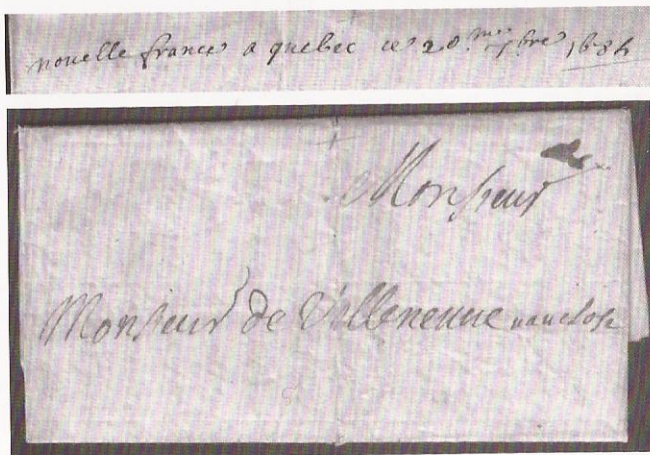 nouelle france a quebec ce 20.me 7.bre 1684
Monsieur
Monsieur de Villeneuue